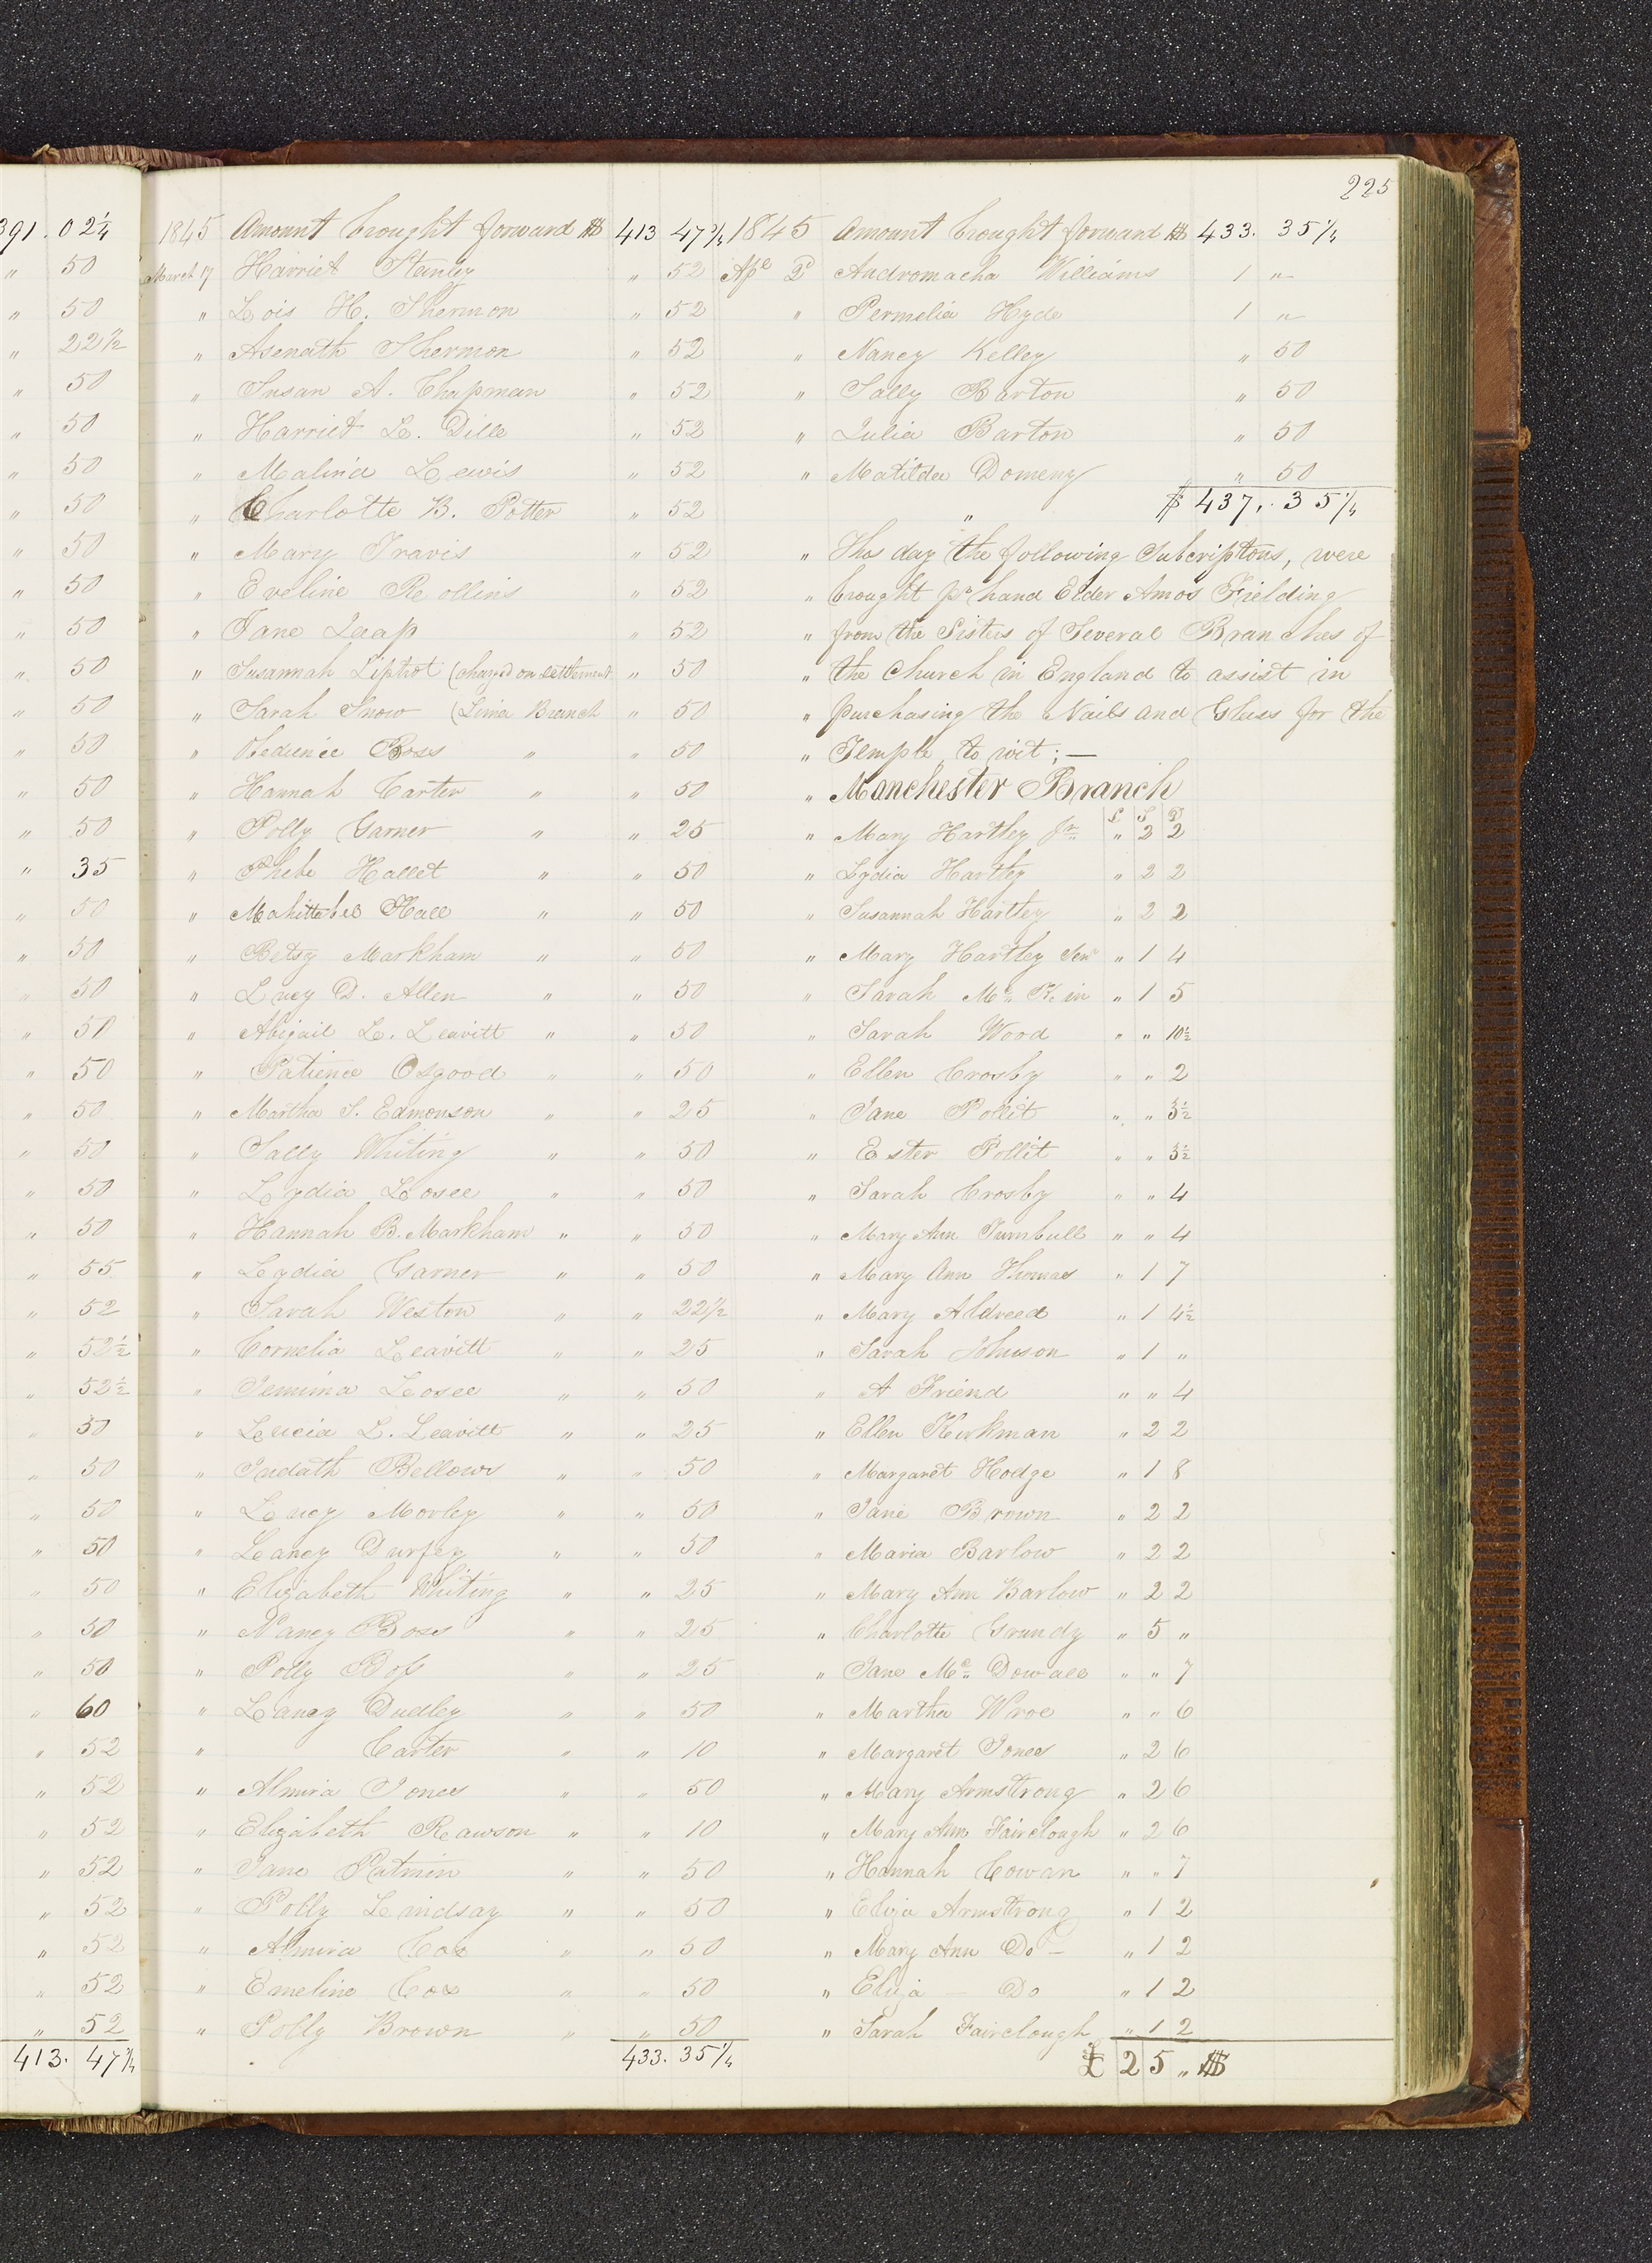 391. 02 1/4
" 50
" 50
" 22 1/2
" 50
" 50
" 50
" 50
" 50
" 50
" 50
" 50
" 50
" 50
" 50
" 50
" 35
" 50
" 50
" 50
" 50
" 50
" 50
" 50
" 50
" 50
" 55
" 52
" 52 1/2
" 52 1/2
" 50
" 50
" 50
" 50
" 50
" 50
" 50
" 60
" 52
" 52
" 52
" 52
" 52
" 52
" 52
" 52
413. 47 3/4
1845 Amount brought forward $ 413 47 3/4
March 17 Harriet Stanley " 52
" Lois H. Shermon " 52
" Asenath Shermon " 52
" Susan A. Chapman " 52
" Harriet L. Dille " 52
" Malinda Lewis " 52
" Charlotte B. Potter " 52
" Mary Travis " 52
" Eveline Rollins " 52
" Jane Leap " 52
" Susannah Liptrot (charged on settlement " 50
" Sarah Snow (Lima Branch " 50
" Obedience Boss " " 50
" Hannah Carter " " 50
" Polly Garner " " 25
" Phebe Hallet " " 50
" Mahittable Hall " " 50
" Betsy Markham " " 50
" Lucy D. Allen " " 50
" Abigail L. Leavitt " " 50
" Patience Osgood " " 50
" Martha S. Edmonson " " 25
" Sally Whiting " " 50
" Lydia Losee " " 50
" Hannah B. Markham " " 50
" Lydia Garner " " 50
" Sarah Weston " " 22 1/2
" Cornelia Leavitt " " 25
" Jemima Losee " " 50
" Lucia L. Leavitt " " 25
" Judath Bellows " " 50
" Lucy Morley " " 50
" Laney Durfey " " 50
" Elizabeth Whiting " " 25
" Nancy Boss " " 25
" Polly Boss " " 25
" Laney Dudley " " 50
" Carter " " 10
" Almira Jones " " 50
" Elizabeth Rawson " " 10
" Jane " 50
" Polly Lindsay " " 50
" Almira Cox " " 50
" Emeline Cox " " 50
" Polly Brown " " 50
433. 35 1/4
225
1845 Amount brought forward $ 433. 35 1/4
Apl 2d Andromacha Williams 1 "
" Permelia Hyde 1 "
" Nancy Kelley " 50
" Sally Barton " 50
" Julia Barton " 50
" Matilda Domeny " 50
" $ 437. 35 1/4
" Ths day the following Subcriptons, were
" brought pr hand Elder Amos Fielding
" from the Sisters of Several Branches of
" the Church in England to assist in
" purchasing the Nails and Glass for the
" Temple to wit; —
" Manchester Branch
£ S D
" Mary Hartley Jr " 2 2
" Lydia Hartley " 2 2
" Susannah Hartley " 2 2
" Mary Hartley Senr " 1 4
" Sarah Mc Kin " 1 5
" Sarah Wood " " 10 1/2
" Ellen Crosby " " 2
" Jane Pollit " " 3 1/2
" Ester Pollit " " 3 1/2
" Sarah Crosby " " 4
" Mary Ann Turnbull " " 4
" Mary Ann Thomas " 1 7
" Mary Aldreed " 1 4 1/2
" Sarah Johnson " 1 "
" A Friend " " 4
" Ellen Kirkman " 2 2
" Margaret Hodge " 1 8
" Jane Brown " 2 2
" Maria Barlow " 2 2
" Mary Ann Barlow " 2 2
" Charlotte Grundy " 5 "
" Jane Mc Dowall " " 7
" Martha Wroe " " 6
" Margaret Jones " 2 6
" Mary Armstrong " 2 6
" Mary Ann Fairclough " 2 6
" Hannah Cowan " " 7
" Eliza Armstrong " 1 2
" Mary Ann Do — " 1 2
" Eliza — Do " 1 2
" Sarah Fairclough " 1 2
£ 2 5 " $